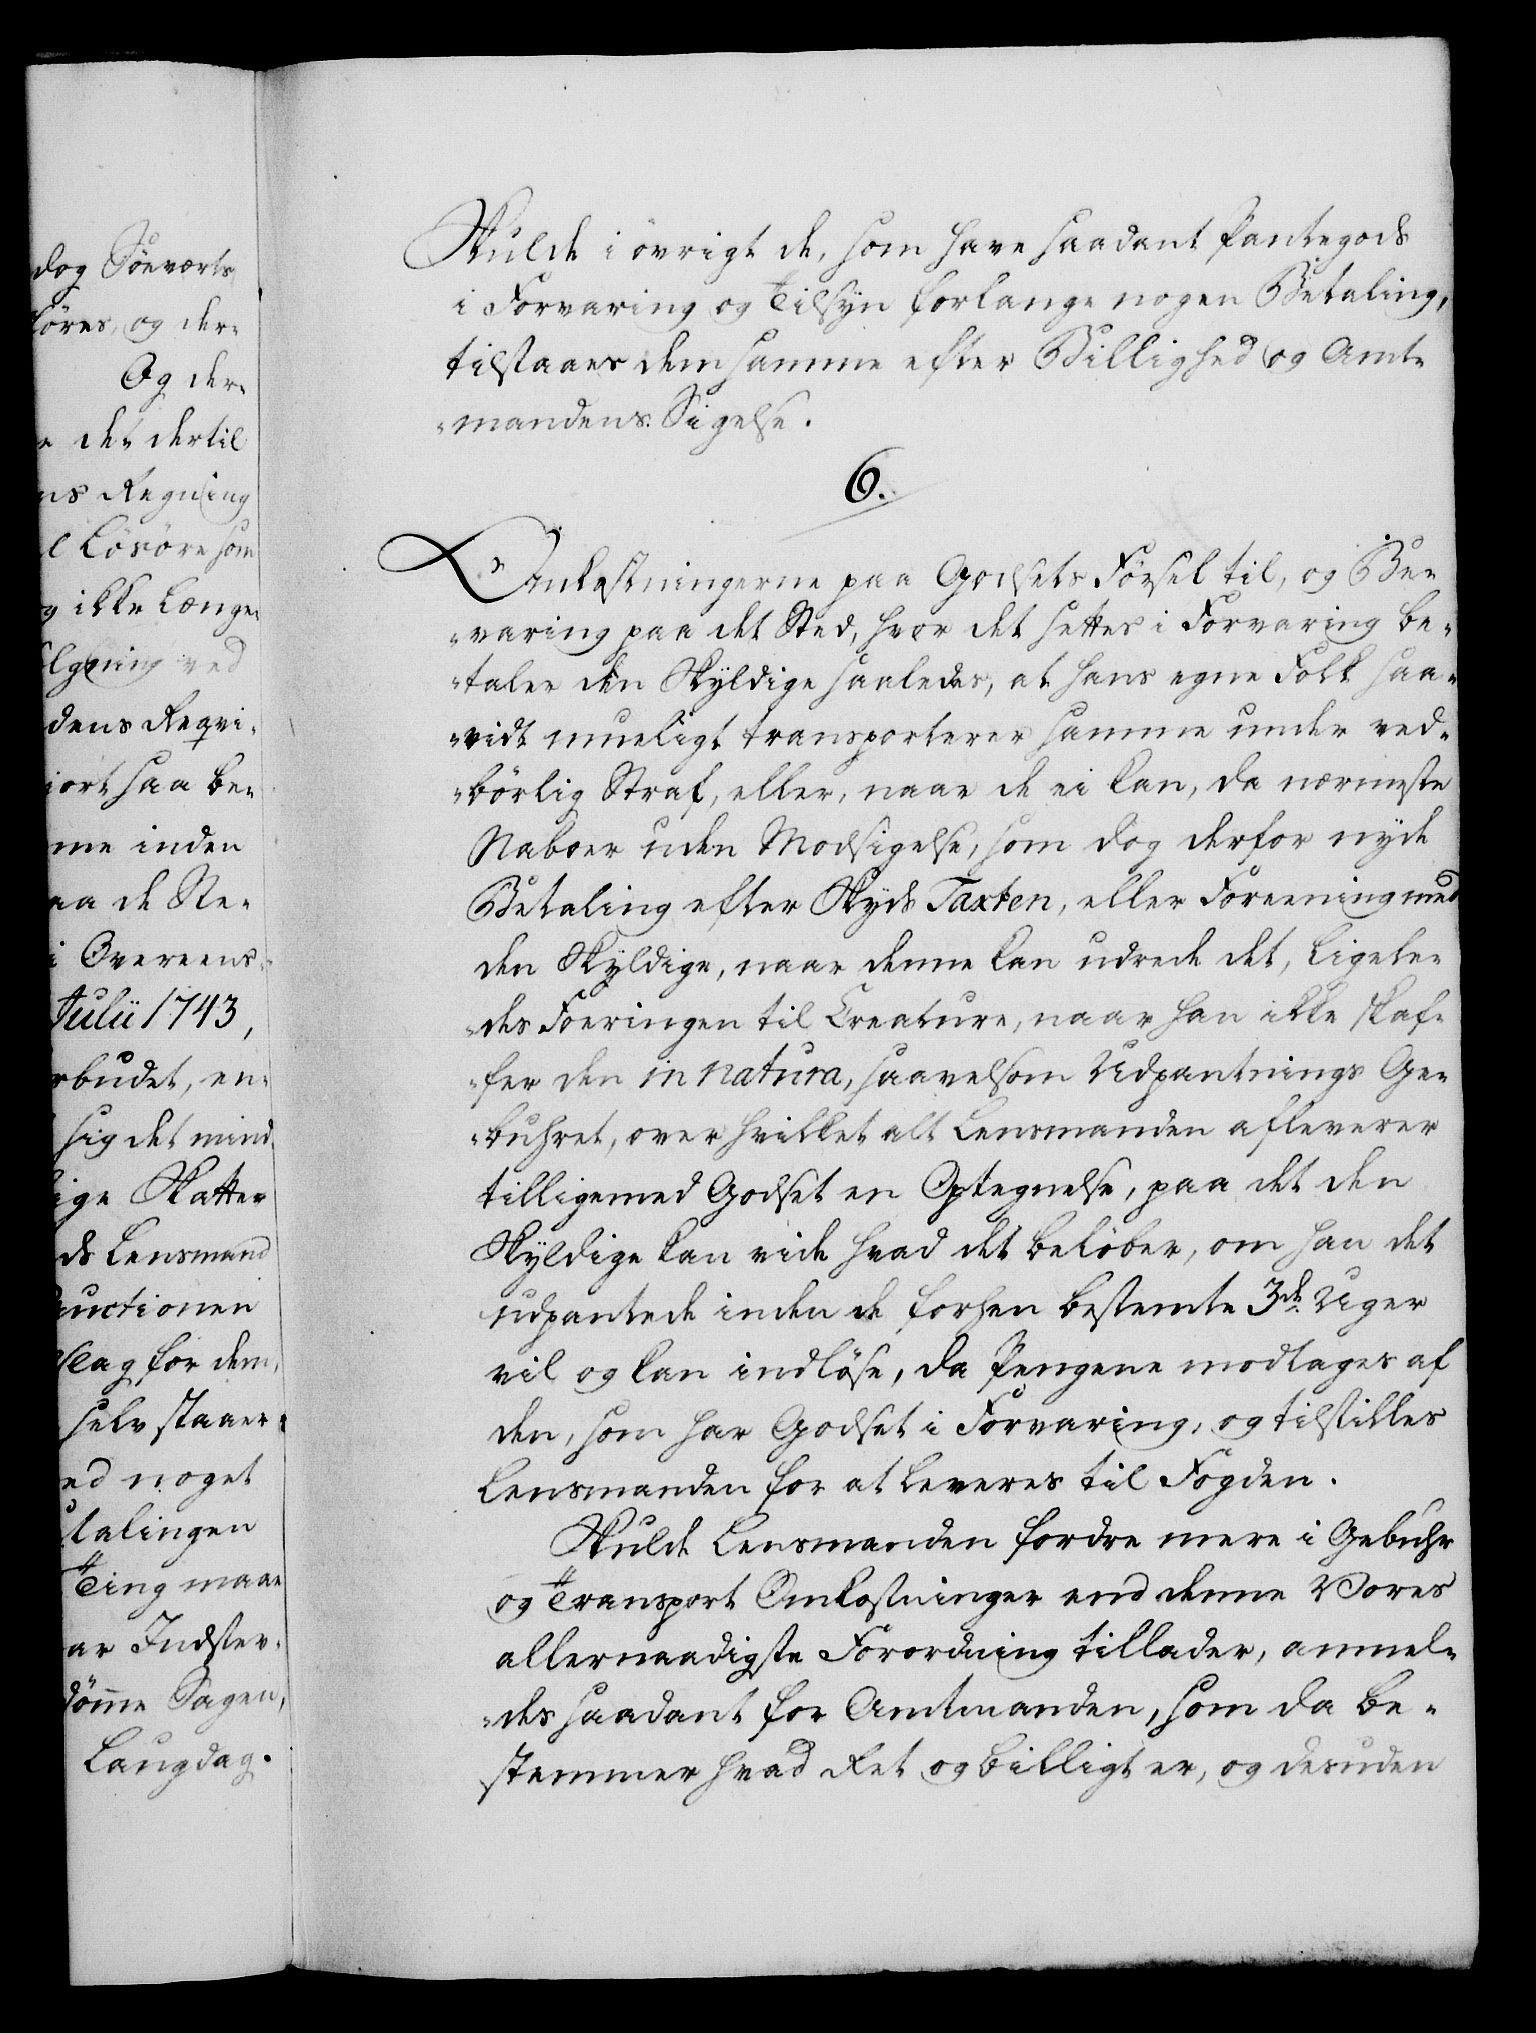 dog Söeværts
föres, og der-
Og der-
e det dertil
ns Regning
l Lösöre som
g ikke Længe-
lgning ved
dens Reqvi-
iort saa be-
me inden
aa de Ste-
i Overeens-
Julii 1743,
rbudet, en-
sig det mind-
ige Skatter
ds Lensmand
Auctionen
slag for dem,
selv staaer
ed noget
talingen
Ting maae
ar Indstev-
dömme Sagen,
Laugdag.
Skulde i övrigt de, som have saadant Pantegods
i Forvaring og Tilsyn forlange nogen Betaling,
tilstaaes dem samme efter Billighed og Amt-
-mandens Sigelse.
6.
Omkostningerne paa Godsets Försel til, og Be-
-varing paa det Sted, hvor det settes i Forvaring be-
-taler den Skyldige saaledes, at hans egne Folk saa-
-vidt mueligt transporterer samme under ved-
-börlig Straf, eller, naar de ei kan, da nærmeste
Naboer uden Modsigelse, som dog derfor nyde
Betaling efter Skyds Taxten, eller Foreening med
den Skyldige, naar denne kan udrede det, ligele-
-des Foeringen til Creature, naar han ikke skaf-
-fer den in natura, saavelsom Udpantnings Ge-
-buhret, over hvilket alt Lensmanden afleverer
tilligemed Godset en Optegnelse, paa det den
Skyldige kan vide hvad det belöber, om han det
udpantede inden de forhen bestemte 3de Uger
vil og kan indlöse, da Pengene modtages af
den, som har Godset i Forvaring, og tilstilles
Lensmanden for at leveres til Fogden.
Skulde Lensmanden fordre mere i Gebuhr
og Transport Omkostninger end denne Vores
allernaadigste Forordning tillader, anmel-
-des saadant for Amtmanden, som da be-
stemmer hvad Ret og billigt er, og desuden